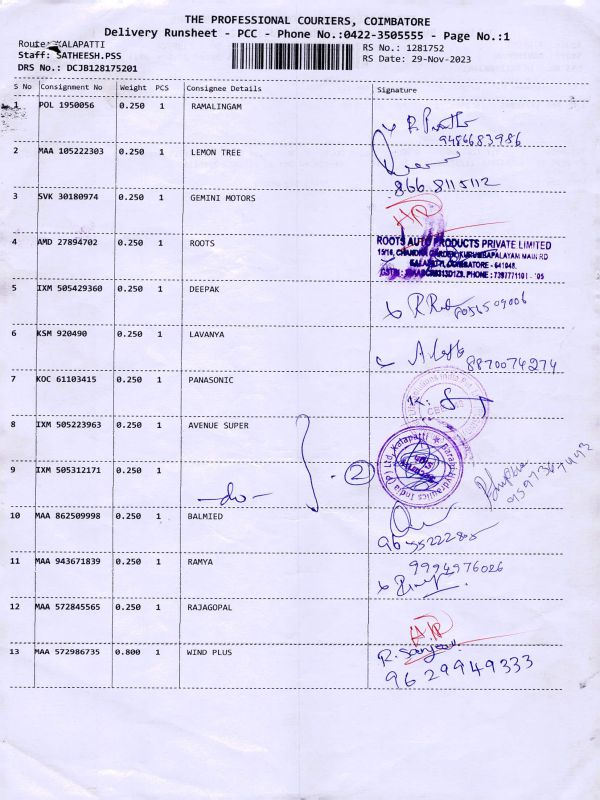 THE PROFESSIONAL COURIERS, COIMBATORE
Delivery Runsheet - PCC - Phone No.:0422-3505555 - Page No.:1
Route: KALAPATTI
RS No.: 1281752
Staff: SATHEESH.PSS
RS Date: 29-Nov-2023
DRS No.: DCJB128175201
S No Consignment No Weight PCS Consignee Details Signature
1 POL 1950056 0.250 1 RAMALINGAM
9486683986
2 MAA 105222303 0.250 1 LEMON TREE
866 8115112
3 SVK 30180974 0.250 1 GEMINI MOTORS
4 AMD 27894702 0.250 1 ROOTS
ROOTS AUTO PRODUCTS PRIVATE LIMITED
KALAPATTI, COIMBATORE - 641048.
5 IXM 505429360 0.250 1 DEEPAK
6 KSM 920490 0.250 1 LAVANYA
8870074274
7 KOC 61103415 0.250 1 PANASONIC
8 IXM 505223963 0.250 1 AVENUE SUPER
2
9 IXM 505312171 0.250 1
-do-
10 MAA 862509998 0.250 1 BALMIED
11 MAA 943671839 0.250 1 RAMYA
9994976026
12 MAA 572845565 0.250 1 RAJAGOPAL
13 MAA 572986735 0.800 1 WIND PLUS
R. Sanjeev
9629949333